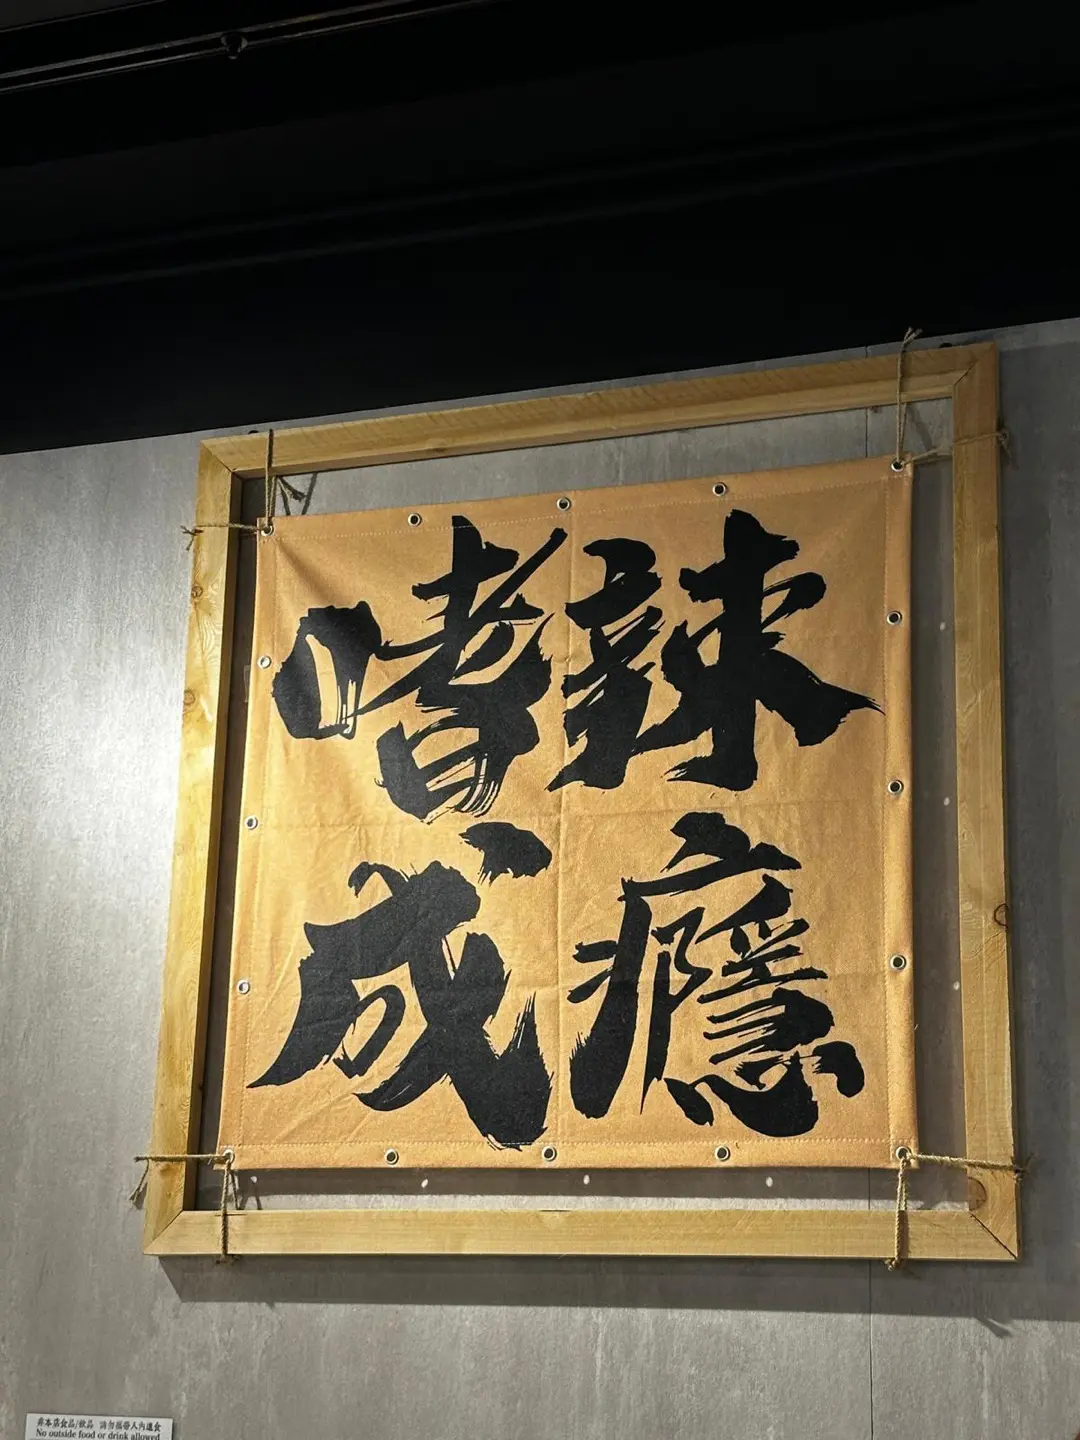 嗜辣
成癮
非本店食品/飲品 請勿攜帶入內進食
No outside food or drink allowed